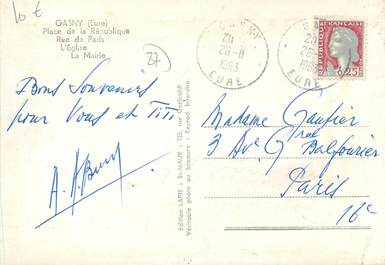 10 €
GASNY (Eure)
Place de la République
Rue de Paris
L'Eglise
La Mairie
27
Bons Souvenirs
pour Vous et Titi
Edition LAPIE - St-MAUR - 125, rue Garibaldi
Véritable photo au bromure - Reprod. Interdite
GASNY
20
28-8
1963
EURE
20
1963
EURE
REPUBLIQUE FRANÇAISE
0,25
Madame Gaufier
3 Ave Gral Balfourier
Paris
16e